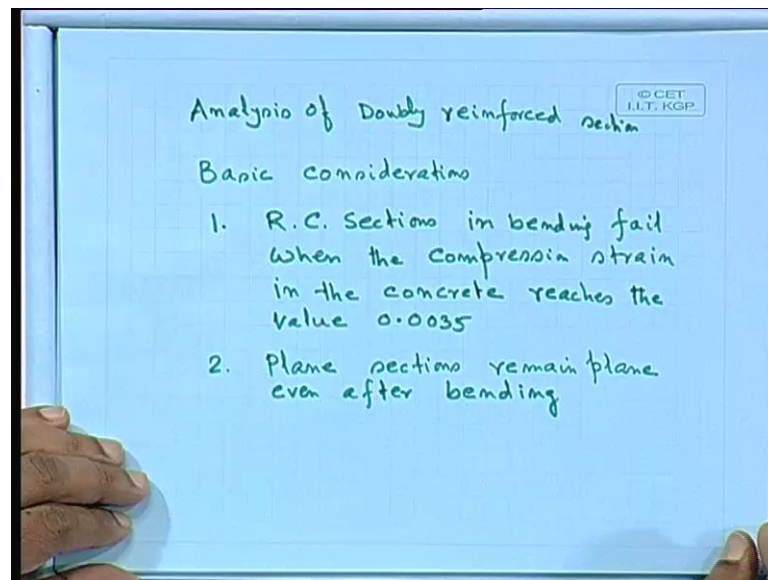 Analysis of Doubly reinforced section
© CET
I.I.T. KGP
Basic considerations
1. R.C. Sections in bending fail
when the compression strain
in the concrete reaches the
value 0.0035
2. Plane sections remain plane
even after bending